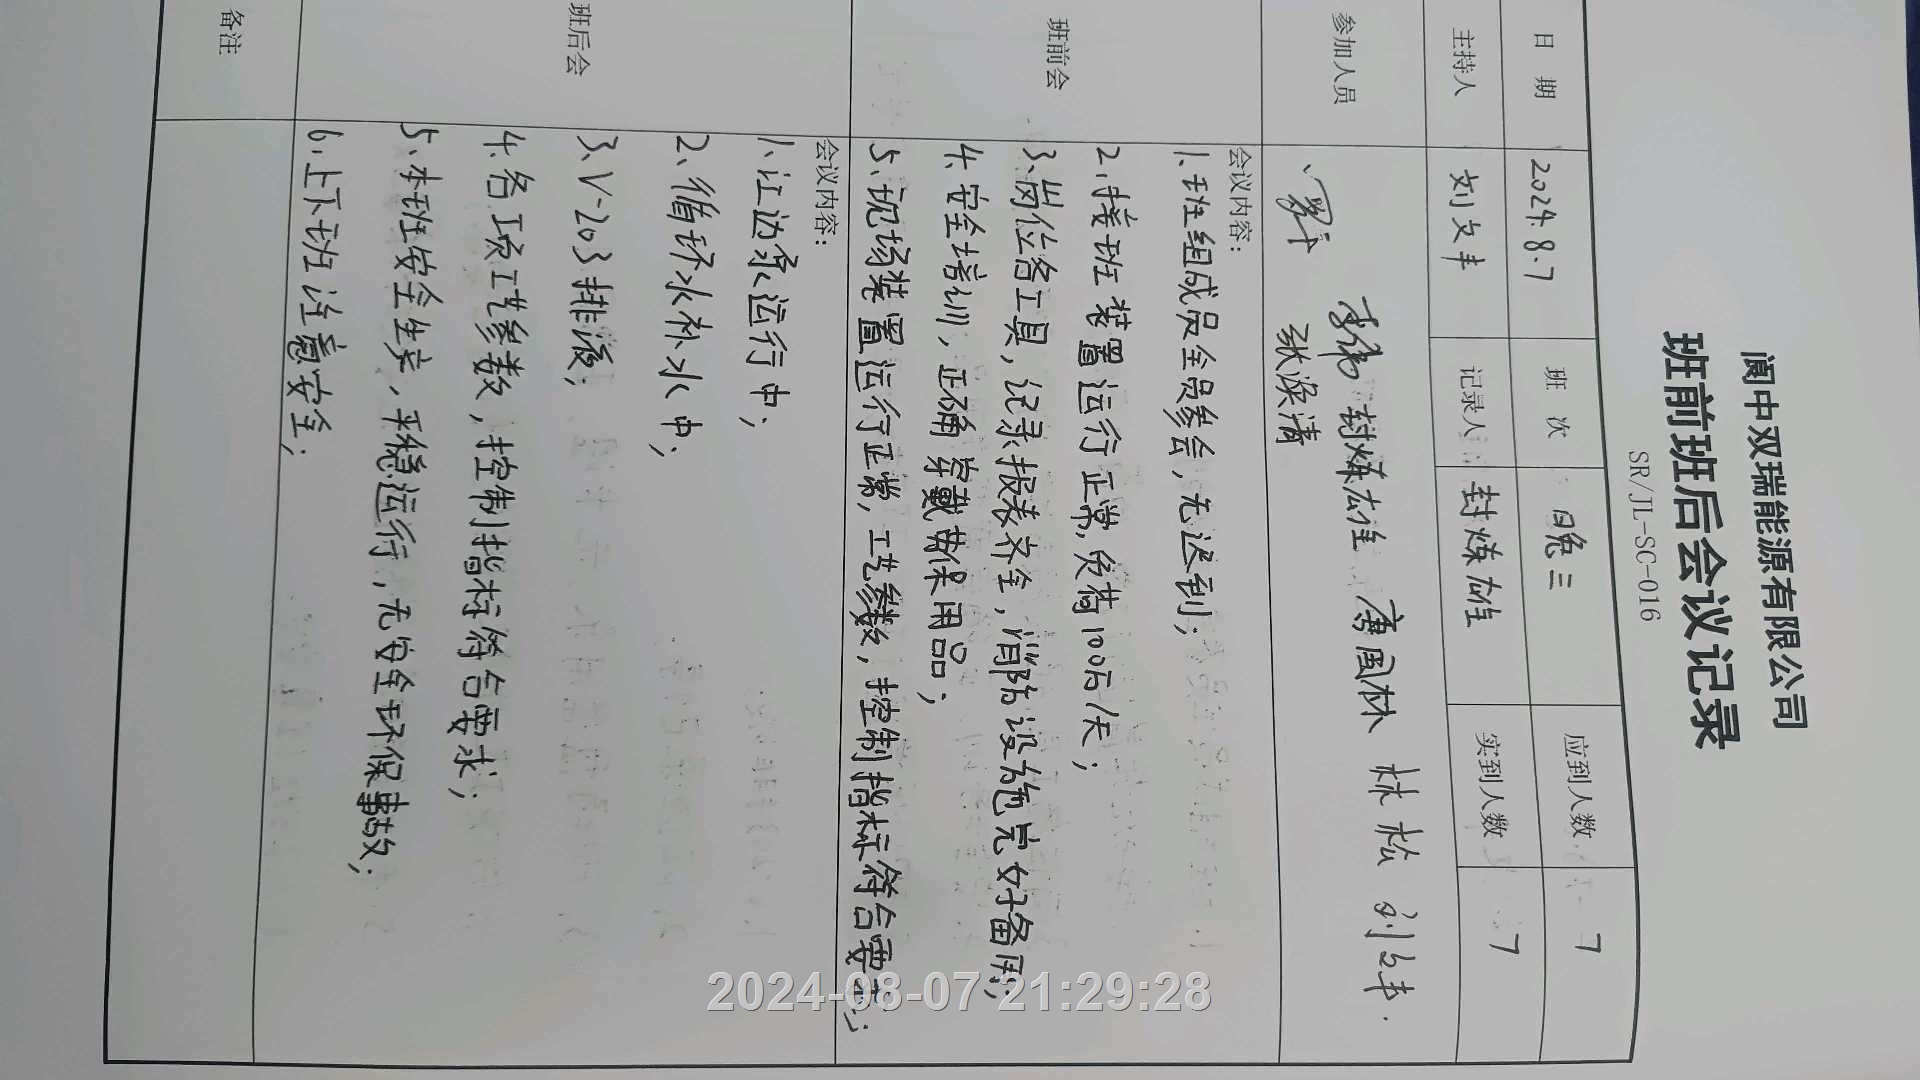 阆中双瑞能源有限公司
班前班后会议记录
SR/JL-SC-016
日期 2024.8.7 班次 白兔三 应到人数 7
主持人 刘文丰 记录人 封焕雄 实到人数 7
参加人员
唐国林 林松 刘文丰
张焕清
班前会
会议内容：
1.班组成员全员参会，无迟到；
2.接班装置运行正常，负荷100万/天；
3.岗位各工具，记录报表齐全，消防设施完好备用；
4.安全培训，正确穿戴劳保用品；
5.现场装置运行正常，工艺参数，控制指标符合要求；
班后会
会议内容：
1、江边泵运行中；
2、循环水补水中；
3、V-203排液；
4.各项工艺参数，控制指标符合要求；
5.本班安全生产，平稳运行，无安全环保事故；
6.上下班注意安全；
备注
2024-08-07 21:29:28